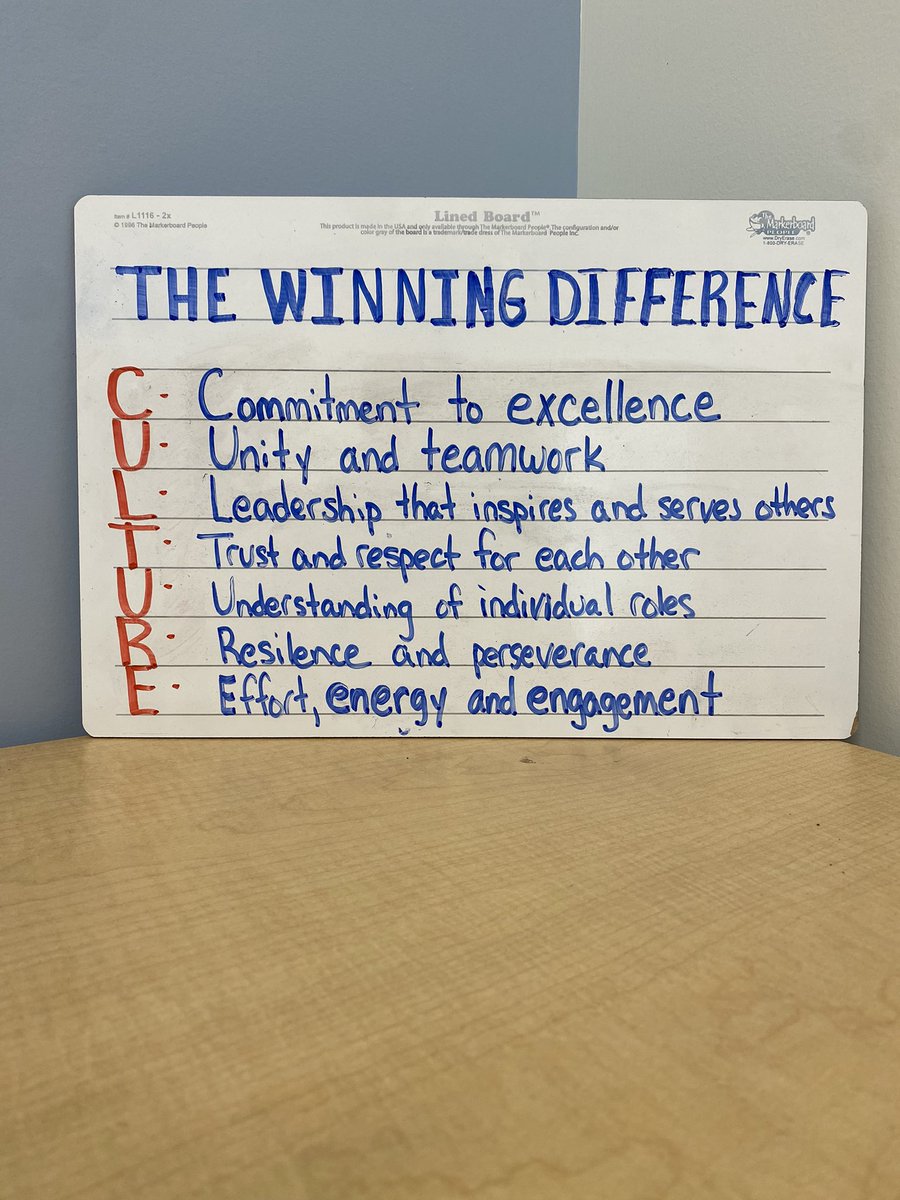 Item # L1116 - 2x
© 1996 The Markerboard People
Lined Board™
This product is made in the USA and only available through The Markerboard People®. The configuration and/or
color gray of the board is a trademark/trade dress of The Markerboard People Inc.
The Markerboard
PEOPLE
www.DryErase.com
1-800-DRY-ERASE
THE WINNING DIFFERENCE
C. Commitment to excellence
U. Unity and teamwork
L. Leadership that inspires and serves others
T. Trust and respect for each other
U. Understanding of individual roles
R. Resilence and perseverance
E. Effort, energy and engagement